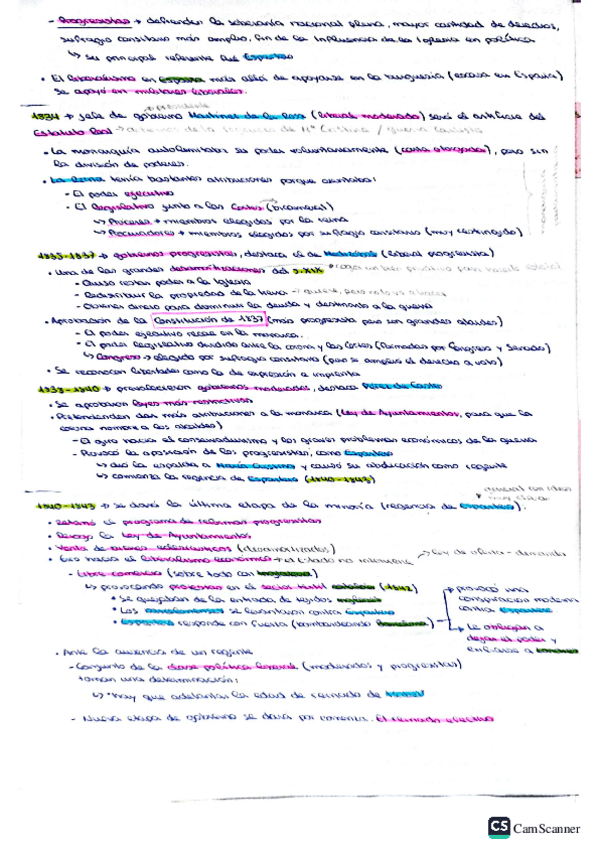 - Progresistas → defienden la soberanía nacional plena, mayor cantidad de derechos,
sufragio censitario más amplio, fin de la influencia de la Iglesia en política
↳ su principal referente fue Espartero
• El liberalismo en España más allá de apoyarse en la burguesía (escasa en España)
se apoyó en militares liberales.
→ presidente
1834 → jefe de gobierno Martínez de la Rosa (liberal moderado) será el artífice del
Estatuto Real → de la regencia de Mª Cristina / guerra carlista
• La monarquía autolimitaba su poder voluntariamente (carta otorgada), pero sin
la división de poderes.
• La Reina tenía bastantes atribuciones porque
- El poder ejecutivo
- El legislativo junto a las Cortes (bicameral)
↳ Próceres → miembros elegidos por la reina
↳ Procuradores → miembros elegidos por sufragio censitario (muy restringido)
1835-1837 → gobiernos progresistas, destaca el de Mendizábal (liberal progresista)
• Una de las grandes desamortizaciones del S.XIX
- Quiso restar poder a la Iglesia
- Redistribuir la propiedad de la tierra
- Obtener dinero para disminuir la deuda y destinarlo a la guerra
• Aprobación de la Constitución de 1837 (más progresista pero sin grandes
- El poder ejecutivo recae en la monarca.
- El poder legislativo dividido entre la corona y las Cortes (formadas por Congreso y Senado)
↳ Congreso → elegido por sufragio censitario (pero se amplía el derecho a voto)
• Se reconocen libertades como la de expresión e imprenta
- 1840 → prevalecieron gobiernos moderados, destaca Pérez de Castro
• Se aprobaron leyes más
• Pretenden dan más atribuciones a la monarca (Ley de Ayuntamientos, para que la
corona nombre a los alcaldes)
- El giro hacia el conservadurismo y los graves problemas económicos de la guerra
- Provocó la oposición de los progresistas, como Espartero
↳ dio la espalda a María Cristina y causó su abdicación como regente
↳ comienza la regencia de Espartero (1840-1843)
general con ideas
muy
1840-1843 → se dará la última etapa de la minoría (regencia de Espartero).
• Retomó el programa de reformas progresistas
• Derogó la Ley de Ayuntamientos
• Venta de bienes eclesiásticos (desamortizados)
• Giro hacia el liberalismo económico → el Estado no interviene → ley de oferta-demanda
- Libre comercio (sobre todo con Inglaterra)
↳ provocando protestas en el sector textil catalán (1842)
• Se quejaban de la entrada de tejidos ingleses
• Los barceloneses se levantaron contra Espartero
• Espartero responde con fuerza (bombardeando Barcelona)
→ provocó una
conspiración moderada
contra Espartero
↳ Le obligan a
dejar el poder y
exiliarse a
• Ante la ausencia de un regente
- Conjunto de la clase política liberal (moderados y progresistas)
toman una determinación:
↳ "hay que adelantar la edad de reinado de Isabel
- Nueva etapa de gobierno se dará por comienzo. El reinado efectivo
CS CamScanner